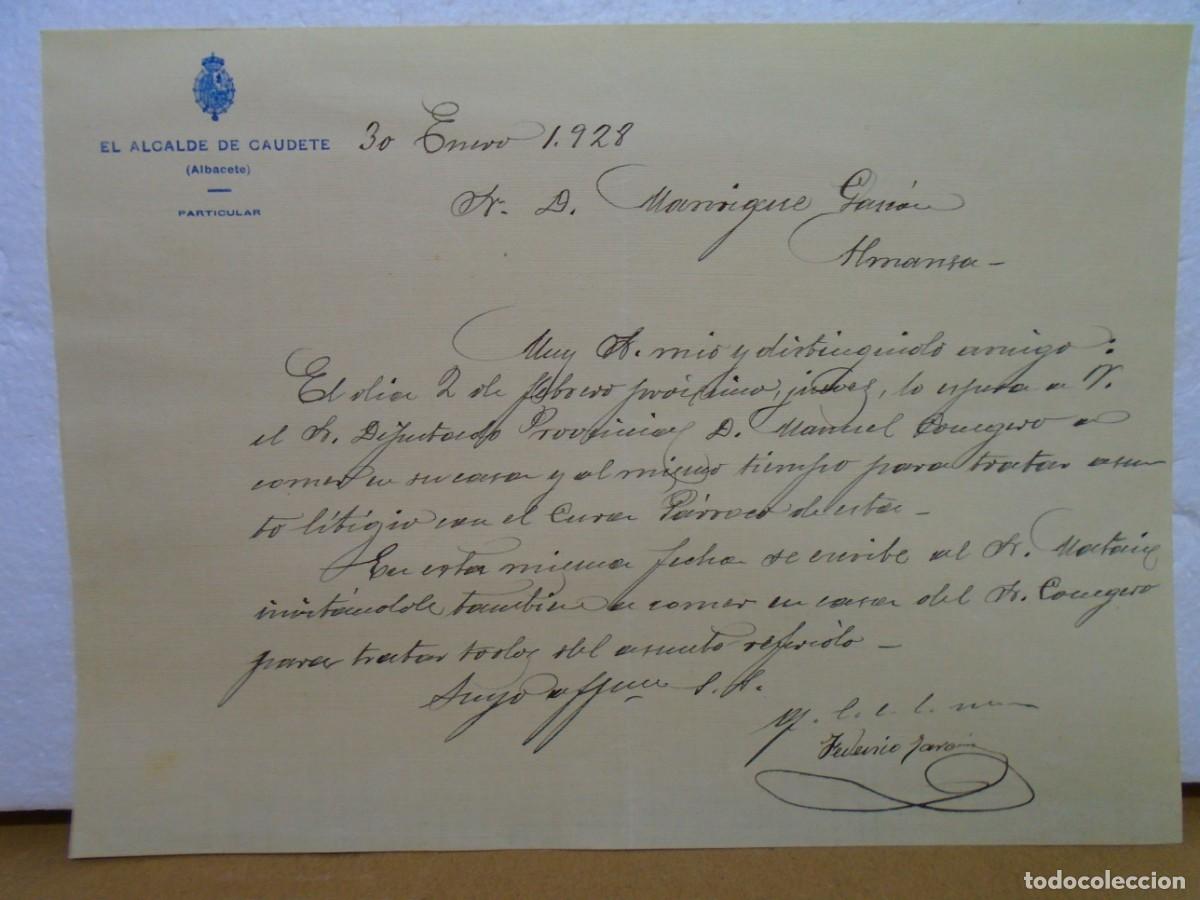 EL ALCALDE DE CAUDETE
(Albacete)
PARTICULAR
30 Enero 1.928
Sr. D. Manrique
Almansa -
Muy Sr. mio y distinguido amigo:
El dia 2 de febrero próximo, jueves, lo espera a V.
el Sr. Diputado Provincial D. Manuel Conegero a
comer en su casa y al mismo tiempo para tratar asun
to litigio con el Cura Párroco de esta -
En esta misma fecha se escribe al Sr. Mataix
invitándole tambien a comer en casa del Sr. Conegero
para tratar todos del asunto referido -
Suyo affmo S. S.
q. e. s. m.
Federico
todocoleccion